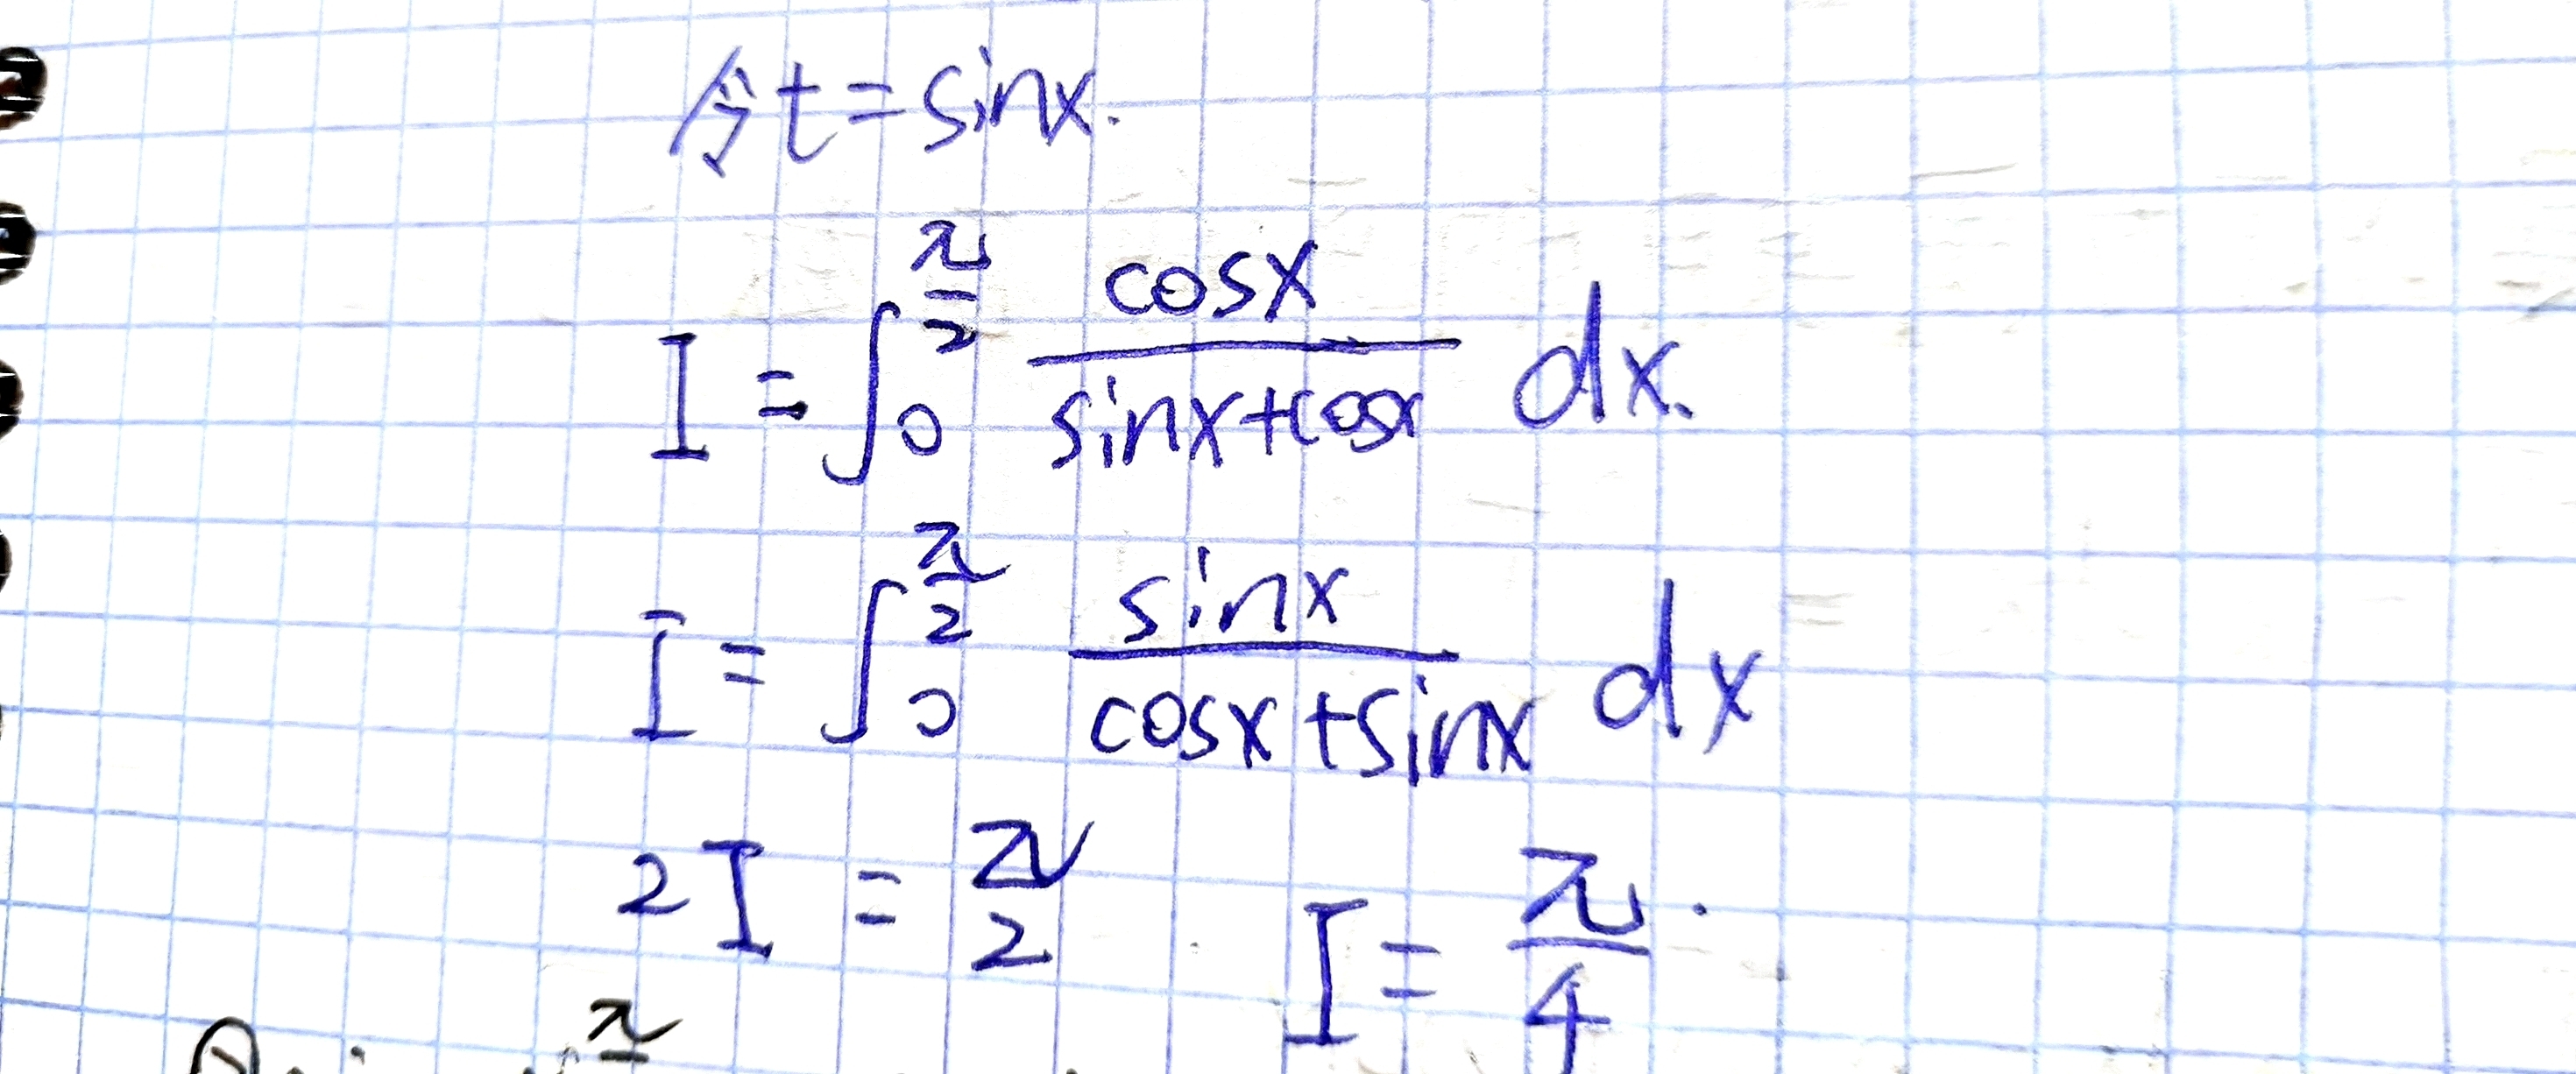 令t=sinx.
I = ∫₀^(π/2) cosx/(sinx+cosx) dx.
I = ∫₀^(π/2) sinx/(cosx+sinx) dx
2I = π/2 I = π/4.
π